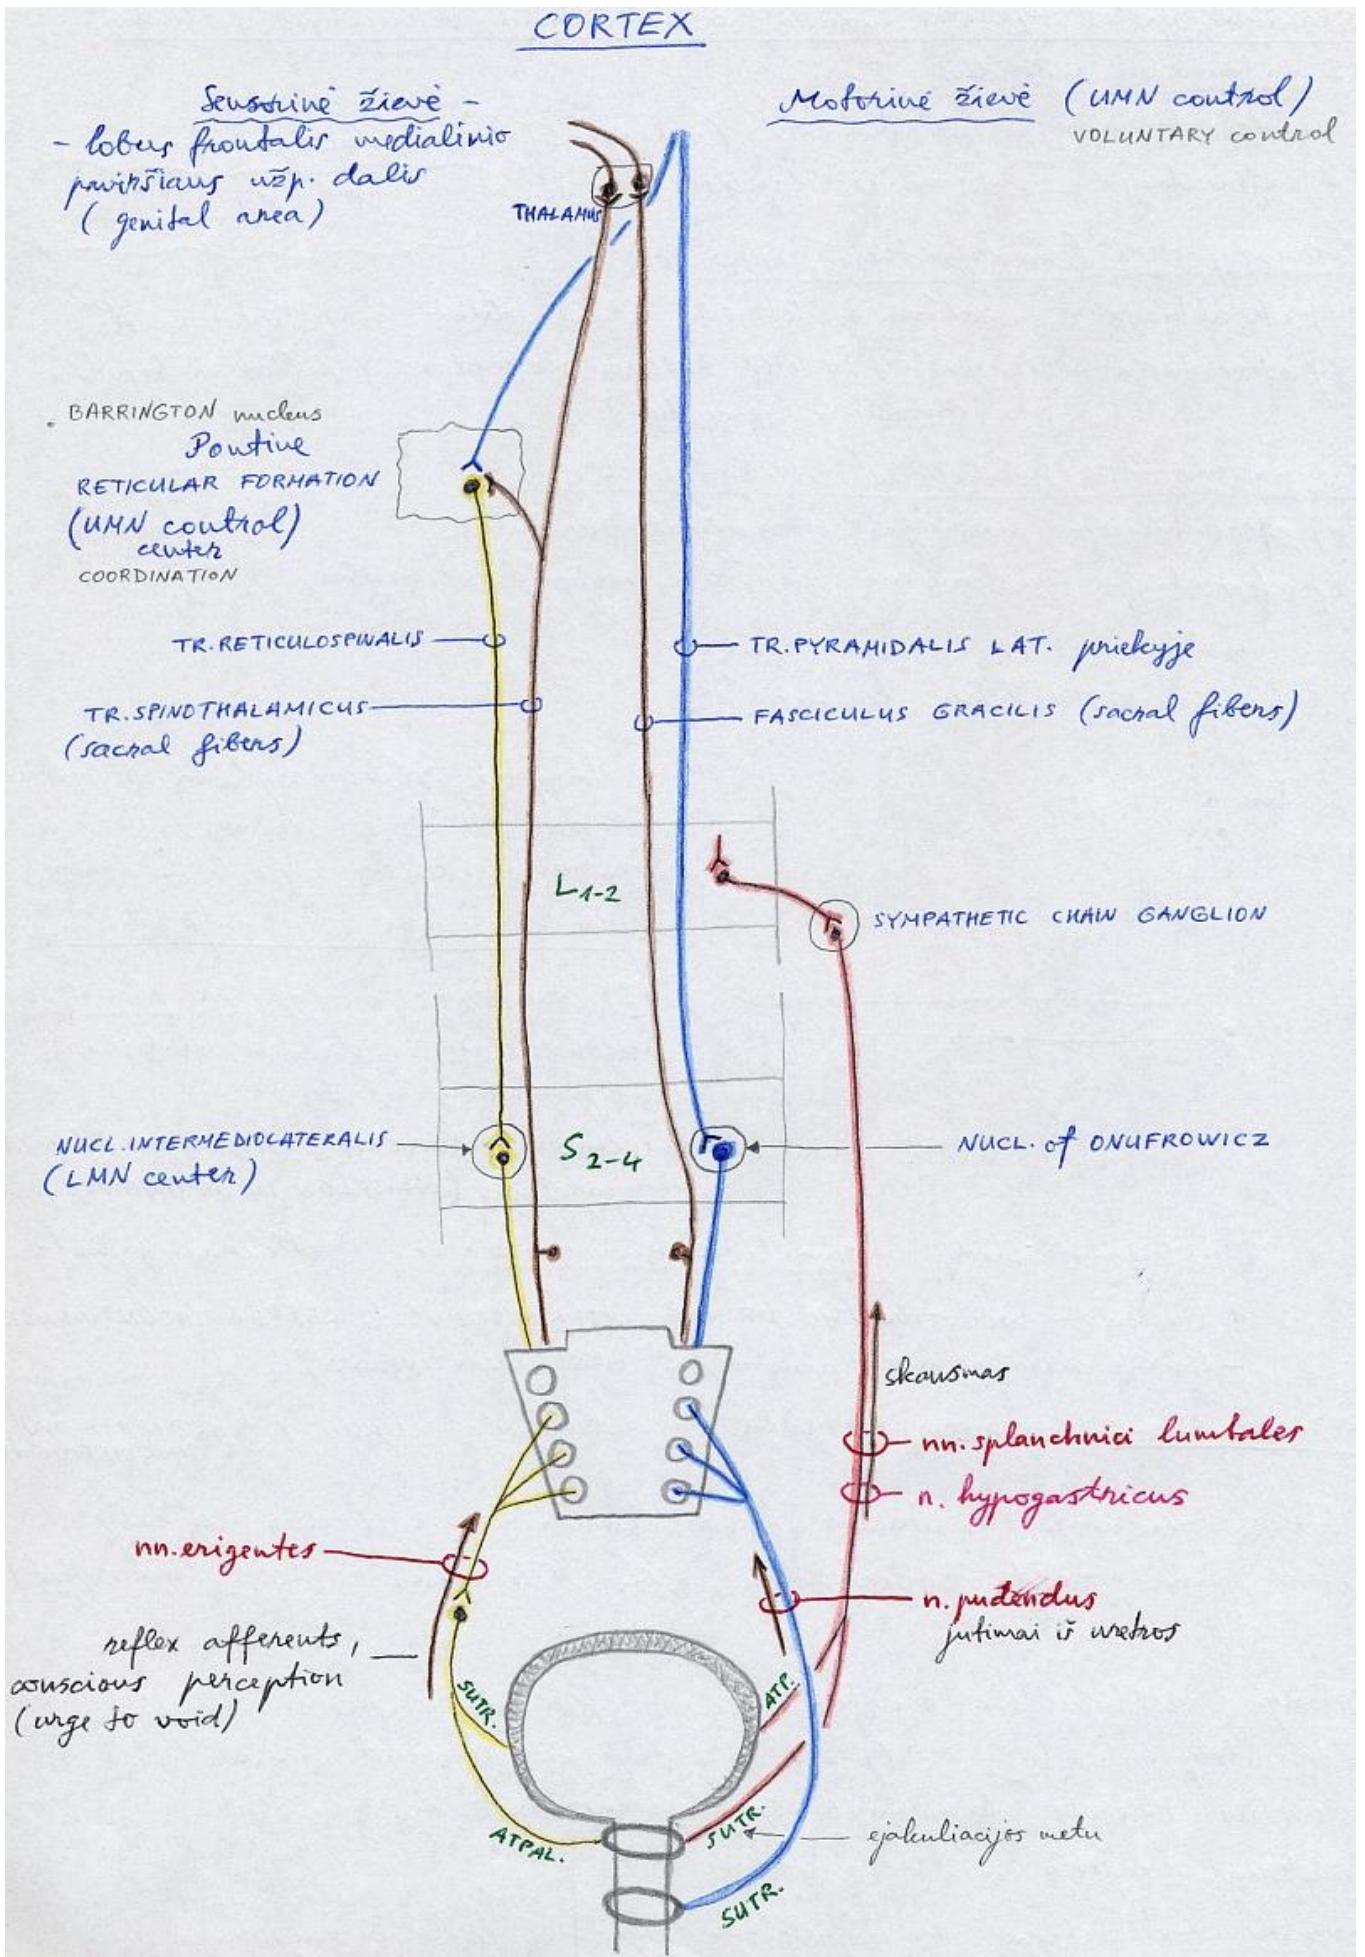 CORTEX
Sensorinė žievė -
- lobus frontalis medialinio
paviršiaus užp. dalis
(genital area)
Motorinė žievė (UMN control)
VOLUNTARY control
THALAMUS
BARRINGTON nucleus
Pontine
RETICULAR FORMATION
(UMN control)
center
COORDINATION
TR. RETICULOSPINALIS
TR. PYRAMIDALIS LAT. priekyje
TR. SPINOTHALAMICUS
(sacral fibers)
FASCICULUS GRACILIS (sacral fibers)
L1-2
SYMPATHETIC CHAIN GANGLION
NUCL. INTERMEDIOLATERALIS
(LMN center)
S2-4
NUCL. of ONUFROWICZ
skausmas
nn. splanchnici lumbales
n. hypogastricus
nn. erigentes
n. pudendus
jutimai iš uretros
reflex afferents,
conscious perception
(urge to void)
SUTR.
ATP.
ATPAL.
SUTR.
ejakuliacijos metu
SUTR.